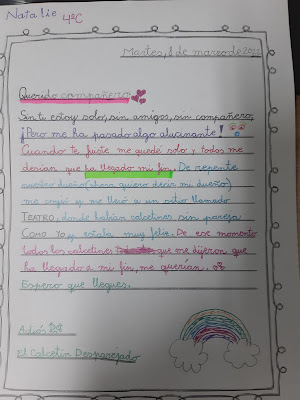 Natalie 4ºC
Martes, 1 de marzo de 2022
Querido compañero
Sin ti estoy solo, sin amigos, sin compañero,
¡Pero me ha pasado algo alucinante!
Cuando te fuiste me quedé solo y todos me
decían que ha llegado mi fin. De repente
nuestro dueño (ahora quiero decir mi dueño)
me cogió y me llevó a un sitio llamado
TEATRO, donde habían calcetines sin pareja
COMO YO y estaba muy feliz. De ese momento
todos los calcetines que me dijeron que
ha llegado a mi fin, me querían.
Espero que llegues.
Adiós
El Calcetín Desparejado